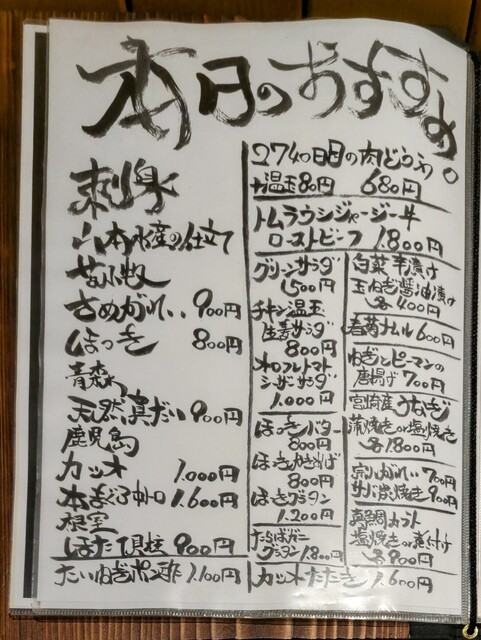 本日のおすすめ。
刺身
八木水産の仕立て
苫小牧
さめがれい 900円
ほっき 800円
青森
天然真だい 900円
鹿児島
カツオ 1.000円
本まぐろ中トロ 1.600円
根室
ほたて貝柱 900円
たいねぎポン酢 1.100円
2740日目の肉どうふ
+温玉80円 680円
トムラウシジャージー牛
ローストビーフ 1.800円
グリーンサラダ
500円
チキン温玉
生春サラダ
800円
オホフルトマト
シーザーサラダ
1.000円
ほっきバター
800円
ほっきかきあげ
800円
ほっきグラタン
1.200円
たらばガニ
グラタン 1.800円
カツオたたき 1.600円
白菜辛漬け
玉ねぎ醤油漬け
各400円
春菊ナムル 600円
ねぎとピーマンの
唐揚げ 700円
宮崎産うなぎ
蒲焼きor塩焼き
各1.800円
宗八がれい 700円
サバ炭焼き 900円
真鯛カブト
塩焼きor煮付け
各900円